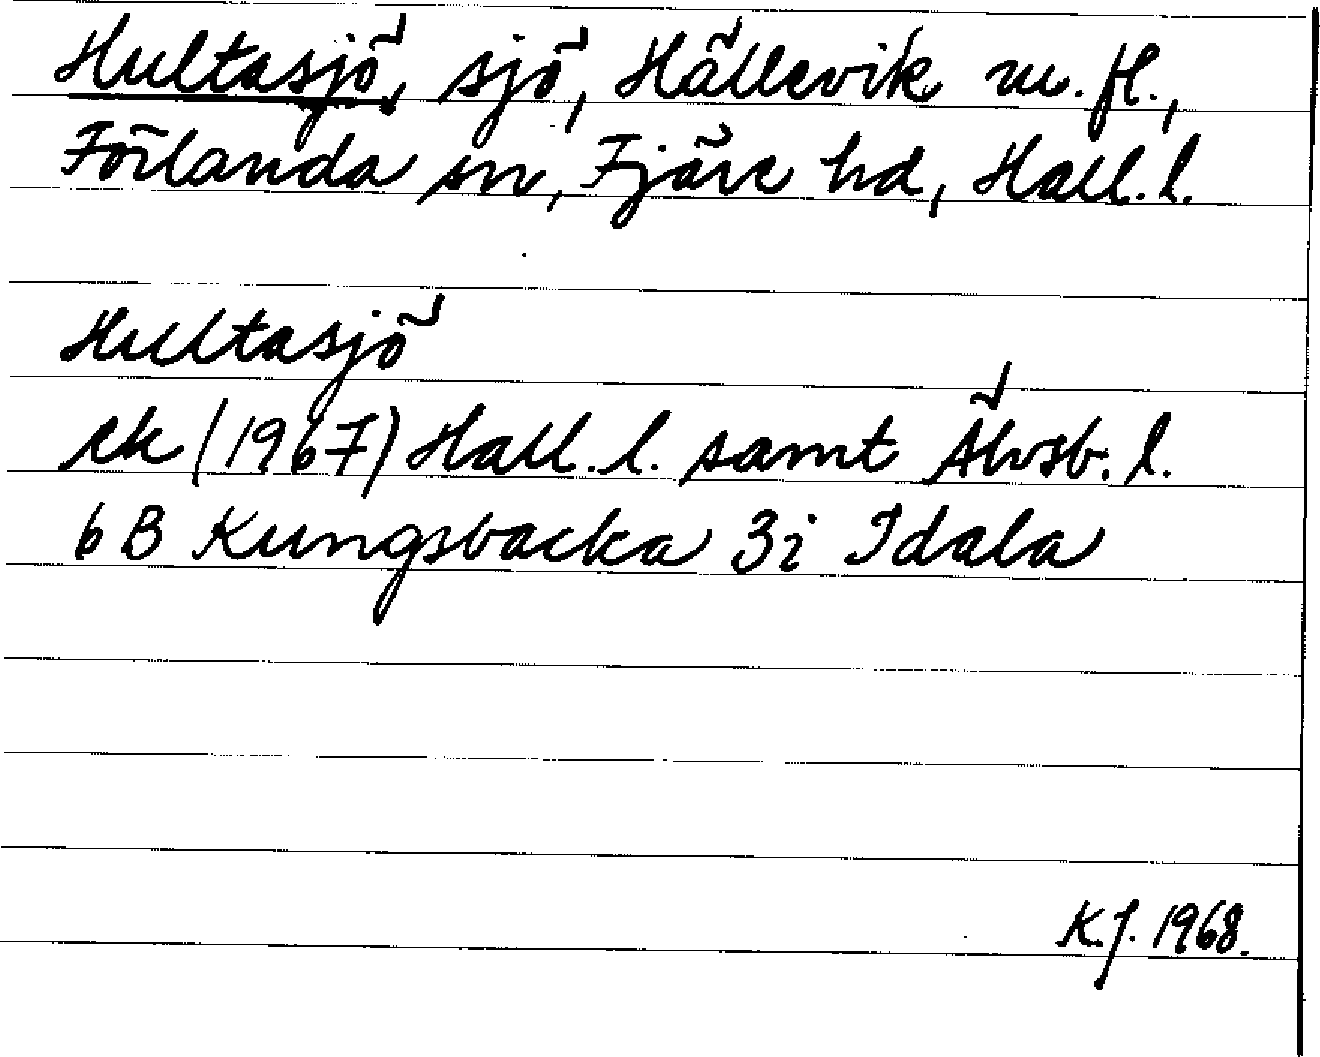 Hultasjö, sjö, Hällevik m. fl.,
Förlanda sn, Fjäre hd, Hall. l.
Hultasjö
ek (1967) Hall. l. samt Älvsb. l.
6B Kungsbacka 3i Idala
K.J. 1968.